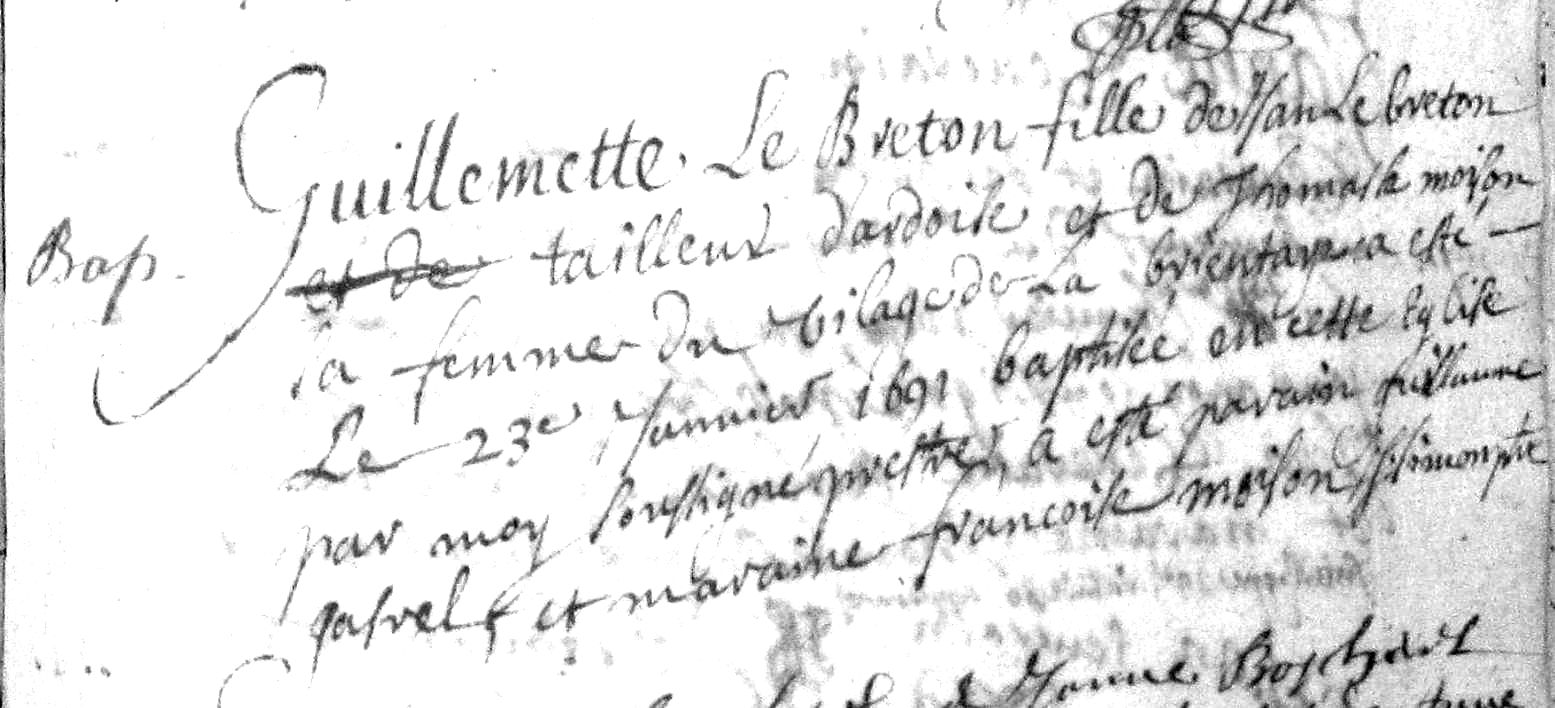 Guillemette Le Breton fille de Jan Le breton
Bap. et de tailleur dardoise et de Thomase moison
sa femme du vilage de La brientaye a esté
Le 23e Janvier 1691 baptisée en cette Eglise
par moy soussigné prestre, a esté parain guillaume
gasrel et maraine francoise moison J simon ptre
Janne